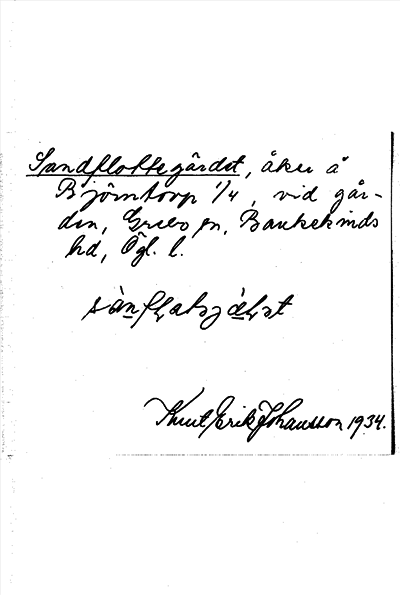 Sandflottegärdet, åker å
Björntorp 1/4, vid går-
den, Grebo sn, Bankekinds
hd, Ögl. l.
Knut Erik Johansson 1934.